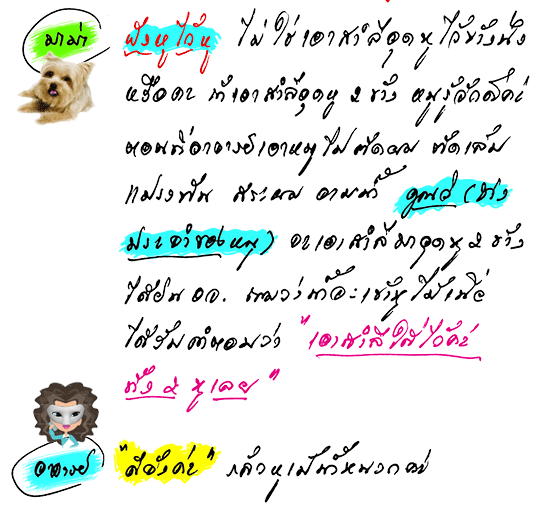 มาม่า ฟังหูไว้หู ไม่ใช่เอาสำลีอุดหูไว้ข้างนึง
หรือคะ ถ้าเอาสำลีอุดหู ๒ ข้าง หนูรู้จักดีค่ะ
ตอนที่อาจารย์เอาหนูไปตัดผม ตัดเล็บ
แปรงฟัน สระผม อาบน้ำ คุณวี (ช่าง
ประจำของหนู) จะเอาสำลีมาอุดหู ๒ ข้าง
ได้ยิน อจ. ถามว่าน้ำจะเข้าหูไม๊เนี่ย
ได้รับคำตอบว่า "เอาสำลีใส่ไว้ค่ะ
ทั้ง ๒ หูเลย"
อาจารย์ "ดีจังค่ะ" กลัวหูเป็นน้ำหนวกค่ะ